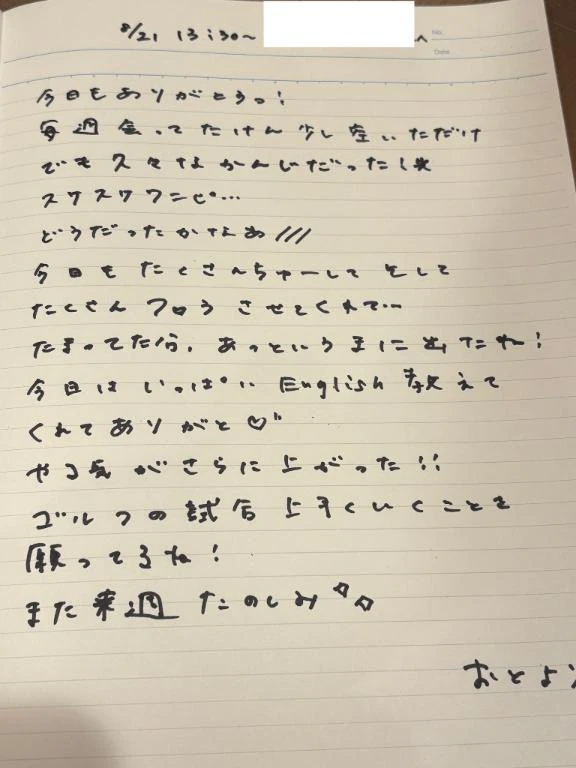 8/21 13:30〜 へ
No.
Date
今日もありがとうっ!
毎週会ってたけん少し空いただけ
でも久々なかんじだった(笑
スケスケワンピ…
どうだったかなぁ///
今日もたくさんちゅーして そして
たくさん フロう させてくれて…
たまってた分、あっというまに出たね!
今日はいっぱい English 教えて
くれてありがと♡
やる気がさらに上がった!!
ゴルフの試合上手くいくことを
願ってるね!
また来週 たのしみ
おとより